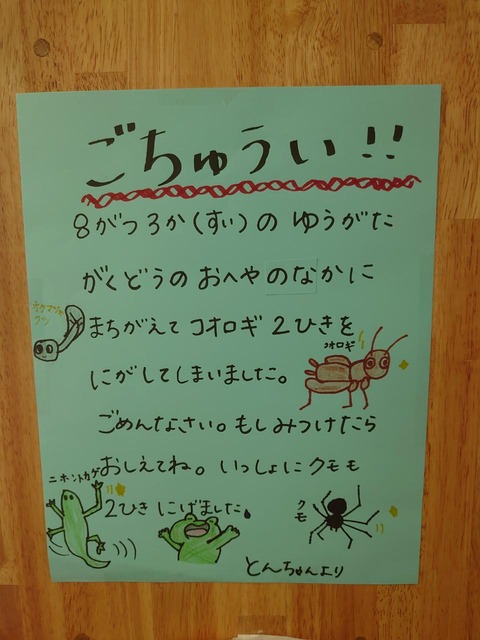 ごちゅうい!!
8がつ3か(すい)の ゆうがた
がくどうの おへやのなかに
まちがえて コオロギ 2ひきを
コオロギ
にがしてしまいました。
ごめんなさい。もしみつけたら
ニホントカゲ
おしえてね。いっしょにクモも
2ひき にげました。
クモ
とんちゃんより